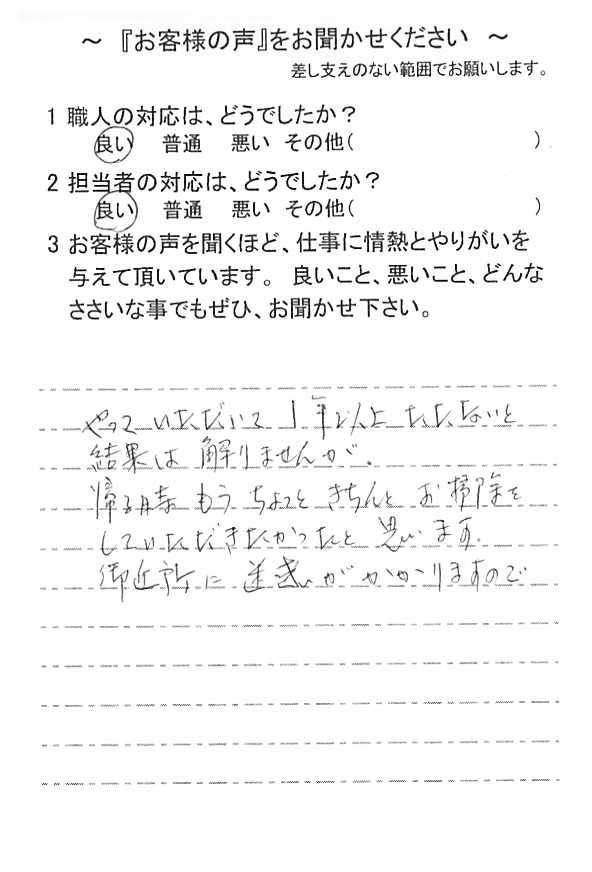 ～ 『お客様の声』をお聞かせください ～
差し支えのない範囲でお願いします。
1 職人の対応は、どうでしたか？
良い 普通 悪い その他( )
2 担当者の対応は、どうでしたか？
良い 普通 悪い その他( )
3 お客様の声を聞くほど、仕事に情熱とやりがいを
与えて頂いています。 良いこと、悪いこと、どんな
ささいな事でもぜひ、お聞かせ下さい。
やっていただいて1年以上たたないと
結果は解りませんが、
帰る時もうちょっときちんとお掃除を
していただきたかったと思います。
御近所に迷惑がかかりますので